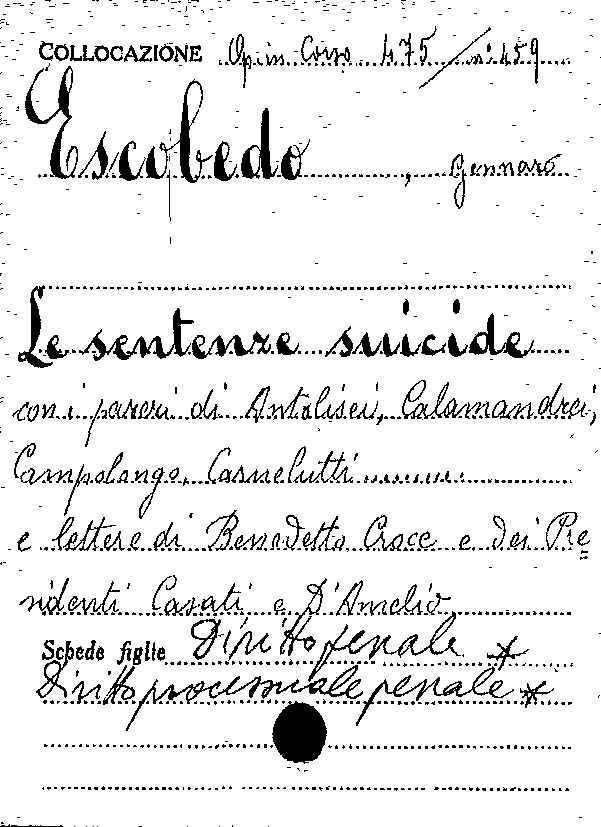 COLLOCAZIONE Opin Corso 475/n° 459
Escobedo, Gennaro
Le sentenze suicide
con i pareri di Antolisei, Calamandrei,
Campolongo, Carnelutti ...........
e lettere di Benedetto Croce e dei Pre
sidenti Casati e D'Amelio
Schede figlie Diritto penale *
Diritto processuale penale *